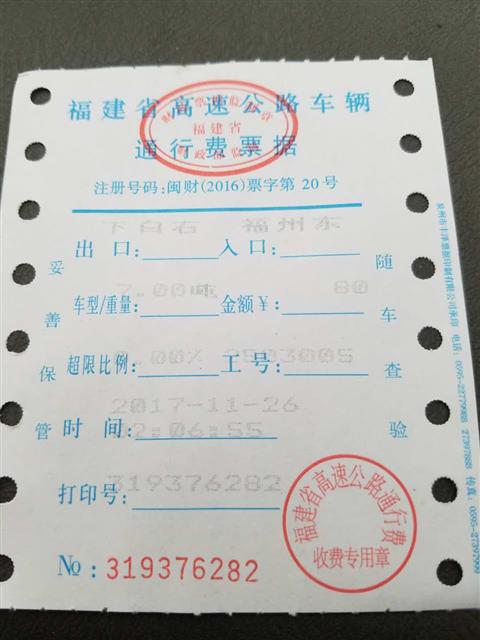 福建省高速公路车辆
通行费票据
福建省
注册号码:闽财(2016)票字第 20 号
下白石 福州东
出口: 入口:
7.00吨 80
车型/重量: 金额¥:
.00% 2503005
超限比例: 工号:
2017-11-26
时间:
2:06:55
打印号:
319376282
№:319376282
妥善保管
随车查验
福建省高速公路通行费
收费专用章
泉州市丰泽票据印刷有限公司承印 电话:0595-22779908 27397888 传真:0595-27397909